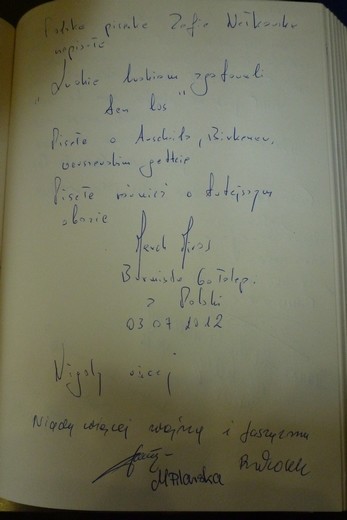 Polska pisarka Zofia Nałkowska
napisała
"Ludzie ludziom zgotowali
ten los"
Pisała o Auschwitz, Birkenau,
warszawskim getcie
Pisała również o tutejszym
obozie
Marek Miros
Burmistrz Gołdap.
z Polski
03 07 2012
Nigdy więcej
Nigdy więcej wojny i faszyzmu